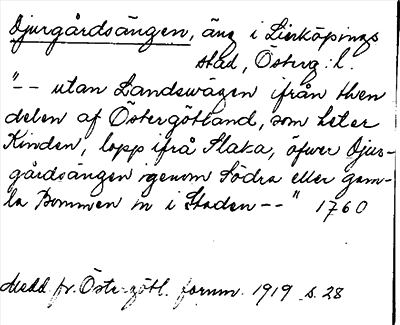 Djurgårdsängen, äng i Linköpings
stad, Österg:l.
"-- utan Landswägen ifrån then
delen af Östergötland, som heter
Kinden, lopp ifrå Slaka, öfwer Djur-
gårdsängen igenom Södra eller gam-
la Bommen in i Staden --" 1760
Medd. fr. Östergötl. fornm. 1919 s. 28